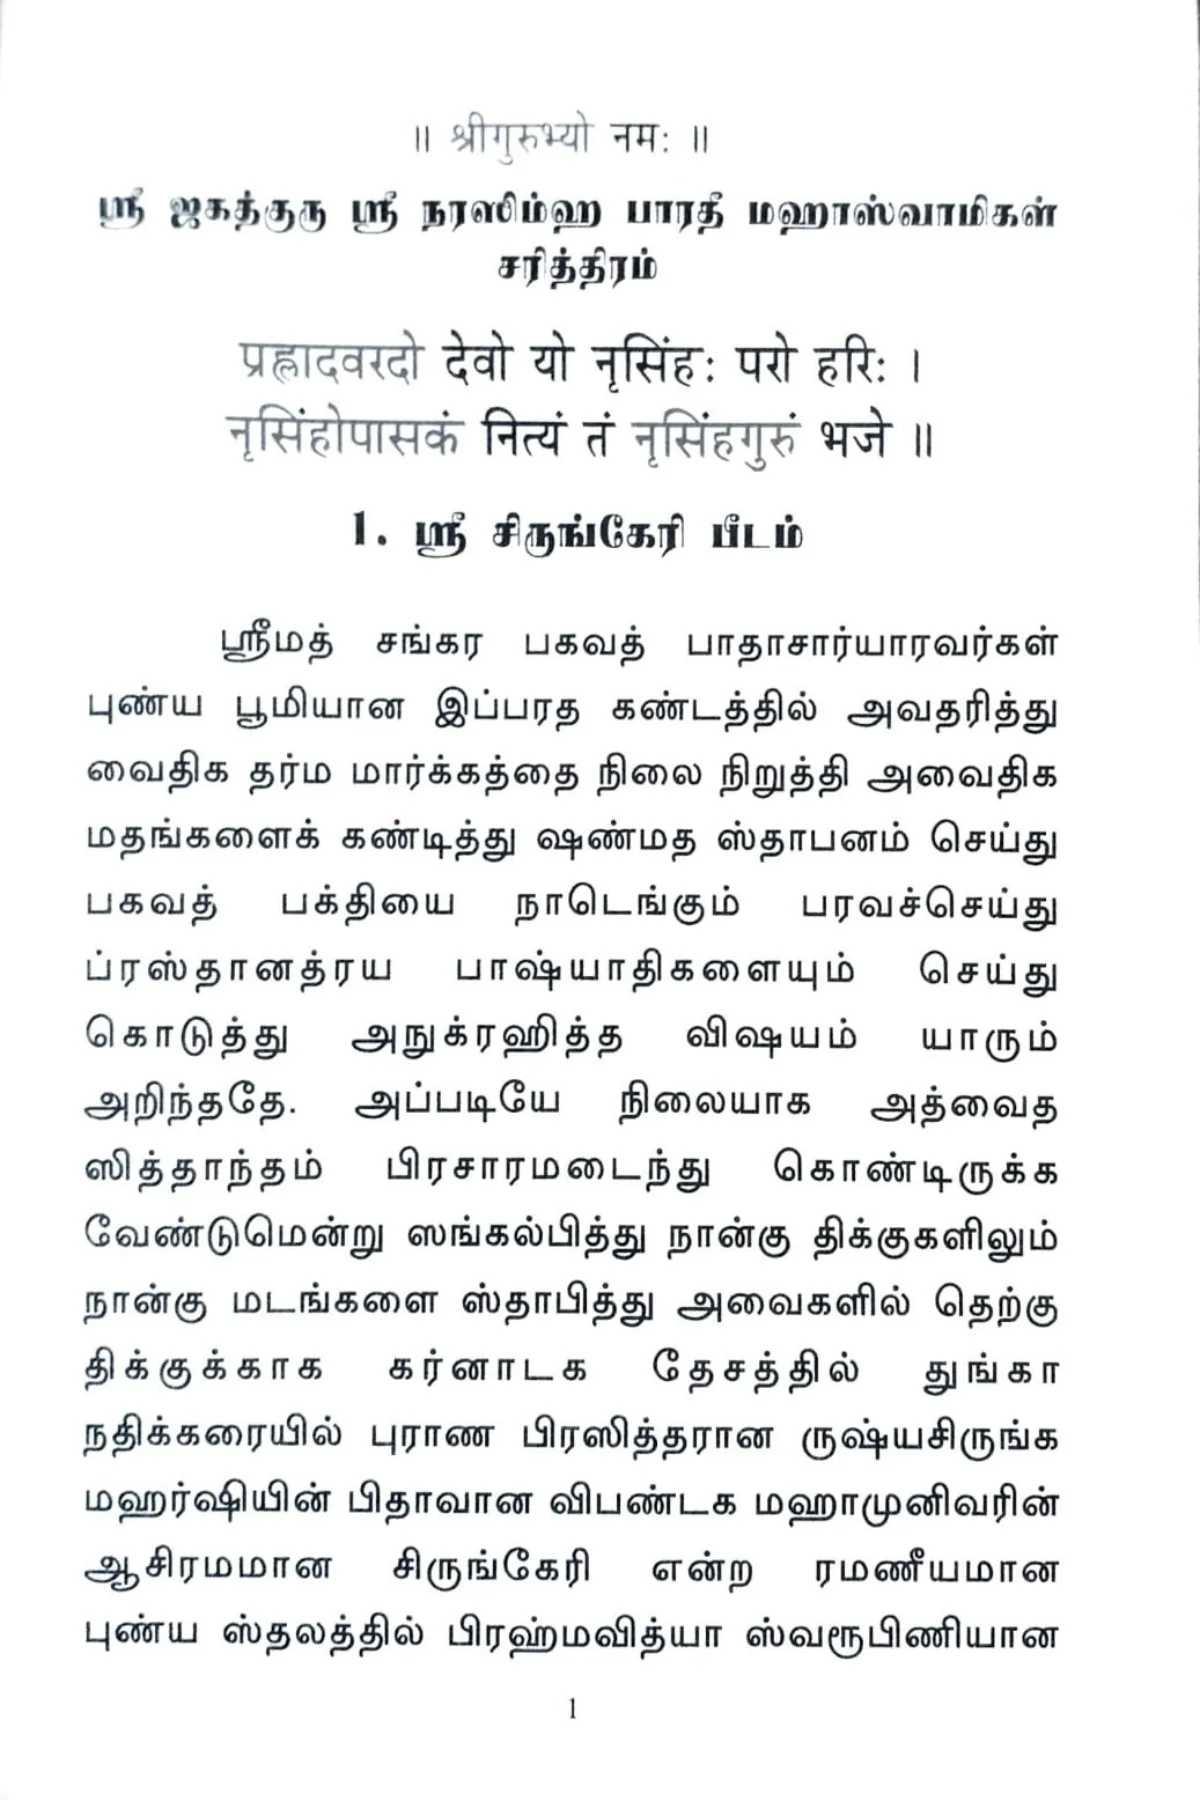 ॥ श्रीगुरुभ्यो नमः ॥
ஸ்ரீ ஜகத்குரு ஸ்ரீ நரஸிம்ஹ பாரதீ மஹாஸ்வாமிகள்
சரித்திரம்
प्रह्लादवरदो देवो यो नृसिंहः परो हरिः ।
नृसिंहोपासकं नित्यं तं नृसिंहगुरुं भजे ॥
1. ஸ்ரீ சிருங்கேரி பீடம்
ஸ்ரீமத் சங்கர பகவத் பாதாசார்யாரவர்கள்
புண்ய பூமியான இப்பரத கண்டத்தில் அவதரித்து
வைதிக தர்ம மார்க்கத்தை நிலை நிறுத்தி அவைதிக
மதங்களைக் கண்டித்து ஷண்மத ஸ்தாபனம் செய்து
பகவத் பக்தியை நாடெங்கும் பரவச்செய்து
ப்ரஸ்தானத்ரய பாஷ்யாதிகளையும் செய்து
கொடுத்து அநுக்ரஹித்த விஷயம் யாரும்
அறிந்ததே. அப்படியே நிலையாக அத்வைத
ஸித்தாந்தம் பிரசாரமடைந்து கொண்டிருக்க
வேண்டுமென்று ஸங்கல்பித்து நான்கு திக்குகளிலும்
நான்கு மடங்களை ஸ்தாபித்து அவைகளில் தெற்கு
திக்குக்காக கர்னாடக தேசத்தில் துங்கா
நதிக்கரையில் புராண பிரஸித்தரான ருஷ்யசிருங்க
மஹர்ஷியின் பிதாவான விபண்டக மஹாமுனிவரின்
ஆசிரமமான சிருங்கேரி என்ற ரமணீயமான
புண்ய ஸ்தலத்தில் பிரஹ்மவித்யா ஸ்வரூபிணியான
1